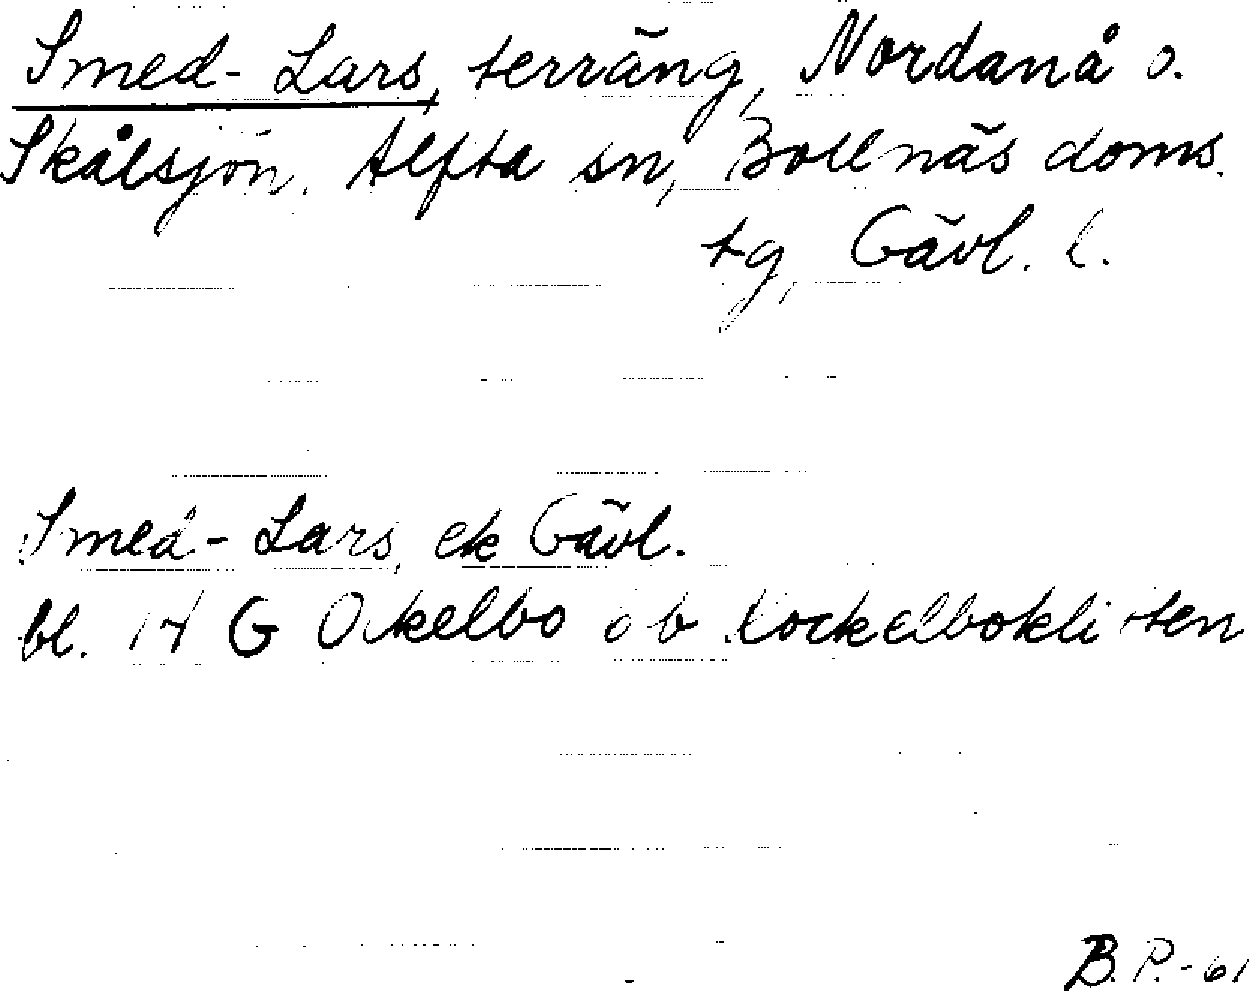 Smed-Lars, terräng, Nordanå o.
Skålsjön. Alfta sn, Bollnäs doms.
tg, Gävl. l.
Smed-Lars, ek Gävl.
bl. 14 G Ockelbo ob Kockelbokliten
B.P.-61